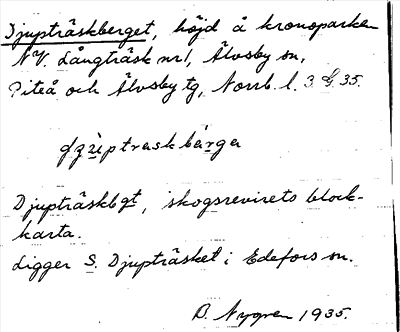 Djupträskberget, höjd å kronoparken
NV. Långträsk nr 1, Älvsby sn,
Piteå och Älvsby tg, Norrb. l. 3. G. 35.
Djupträskbgt, skogsrevirets block-
karta.
Ligger S. Djupträsket i Edefors sn.
B. Nygren 1935.